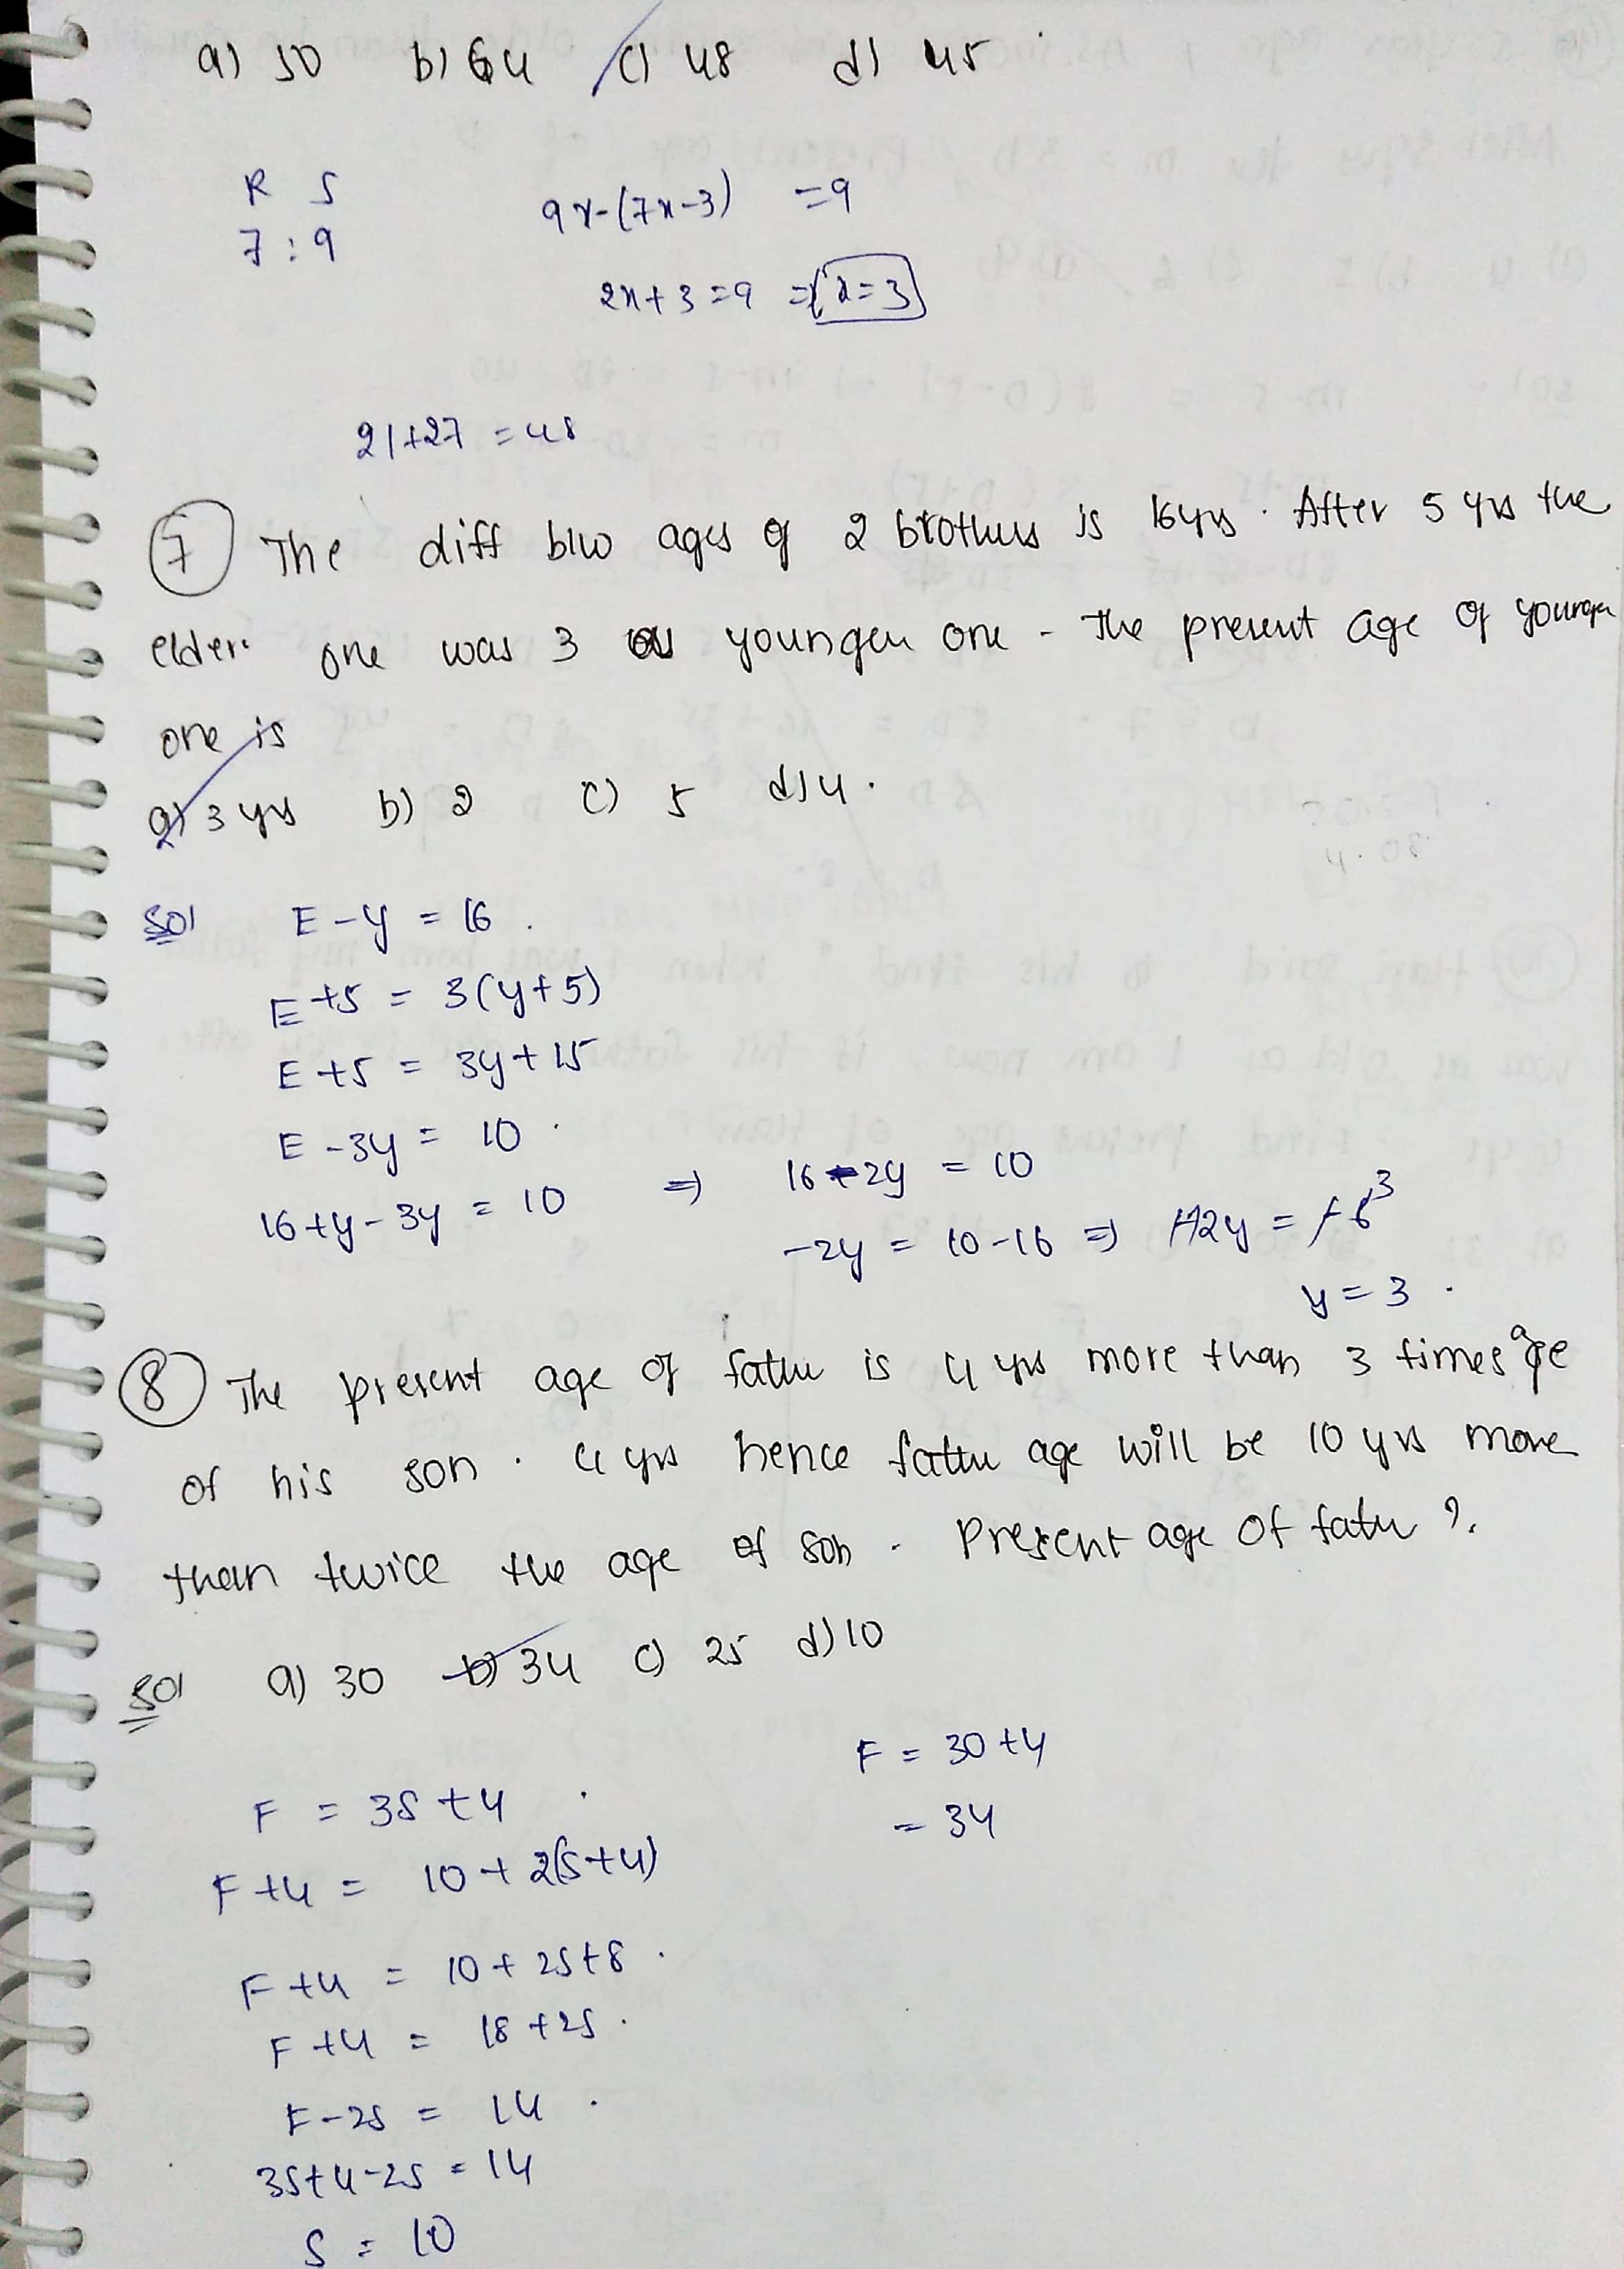 a) 50 b) 64 c) 48 d) 45
R S
7 : 9
9x-(7x-3) = 9
2x+3=9 => x=3
21+27 = 48
7 The diff b/w ages of 2 brothers is 16 yrs. After 5 yrs the
elder one was 3 younger one - The present age of younger
one is
a) 3 yrs b) 2 c) 5 d) 4.
Sol E-y = 16.
E+5 = 3(y+5)
E+5 = 3y+15
E-3y = 10.
16+y-3y = 10 => 16-2y = 10
-2y = 10-16 => +2y = +6 3
y = 3.
8 The present age of father is 4 yrs more than 3 times age
of his son. 4 yrs hence father age will be 10 yrs more
than twice the age of son. Present age of father?
Sol a) 30 b) 34 c) 25 d) 10
F = 3S+4
F+4 = 10+2(S+4)
F+4 = 10+2S+8.
F+4 = 18+2S.
F-2S = 14.
3S+4-2S = 14
S = 10
F = 30+4
= 34